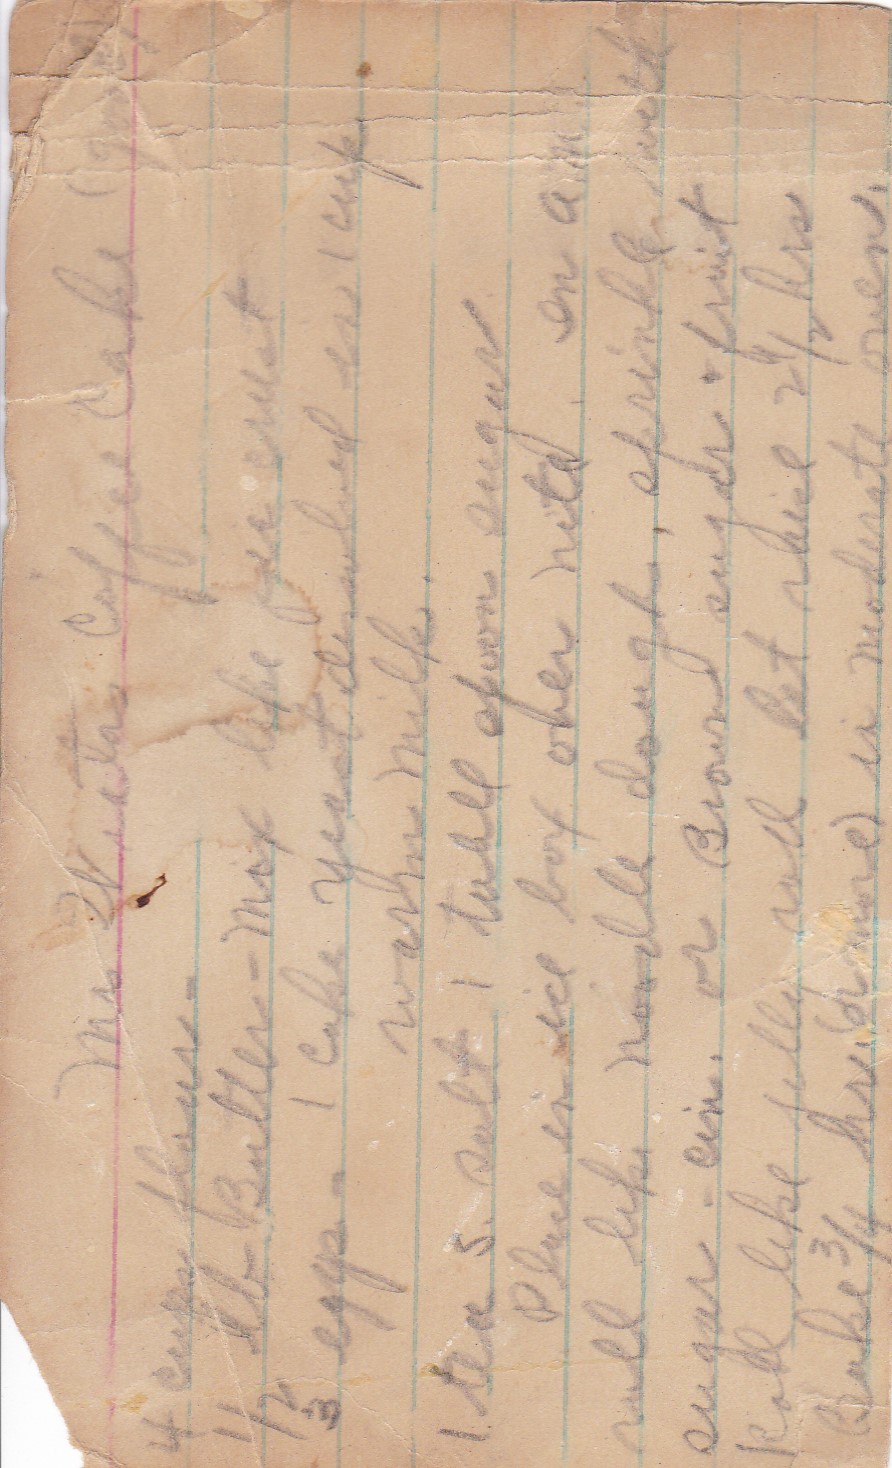 Mrs Coffee Cake (good)
4 cups flour -
1/2 lb Butter - Mix like pie crust
3 eggs - 1 cake yeast dissolved in 1 cup
warm milk.
1 tea s. salt 1 table spoon sugar
Place in ice box over nite. in a.m.
roll like noodle dough, sprinkle with
sugar - cin. or Brown sugar + fruit
Roll like jelly roll let raise 2 1/2 hrs
Bake 3/4 hr. (or more) in moderate oven.